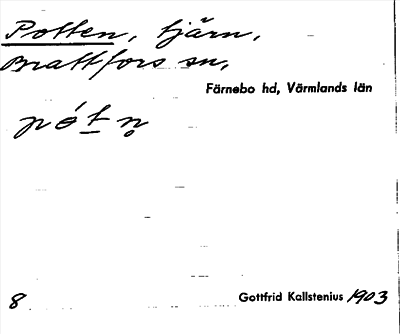 Potten, tjärn,
Brattfors sn,
Färnebo hd, Värmlands län
pót n̥
8
Gottfrid Kallstenius 1903